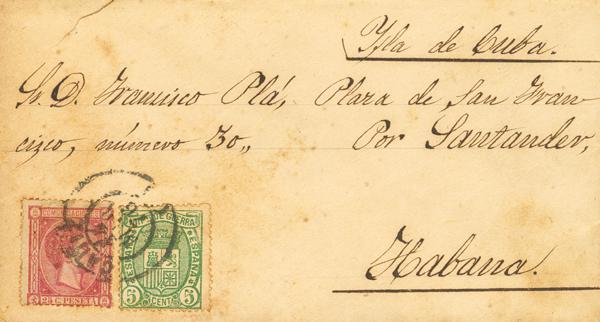 Isla de Cuba.
Sr. D. Francisco Plá, Plaza de San Fran
cizco, número 30,, Por Santander,
Habana.
COMUNICACIONES
25 C. PESETA
IMPTO DE GUERRA
ESPAÑA ESPAÑA
5 CENT 5